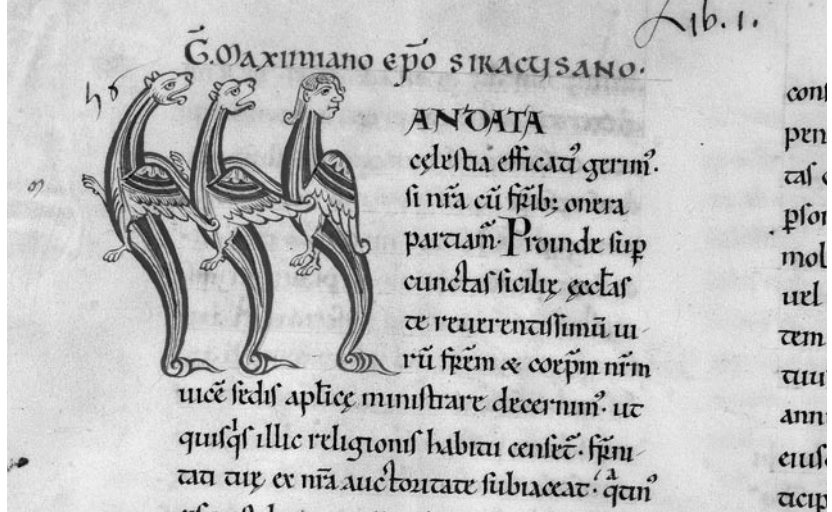 Lib. I.
G̅. MAXIMIANO EP̅O SIRACUSANO.
MANDATA
cęlestia efficatiꝰ gerimꝰ.
si nr̅a cũ fr̅ib; onera
partiam̅. Proinde suꝑ
cunctas sicilię ęccl̅as
te reuerentissimũ ui
rũ fr̅em & coep̅m nr̅m
uicē sedis apl̅icę ministrare decernimꝰ. ut
quisq̇s illic religionis habitu censet̅. fr̅ni
tati tuę ex nr̅a auctoritate subiaceat.
conf
pen
tas
ꝑson
mol
uel
tem
ann
eius
ticip